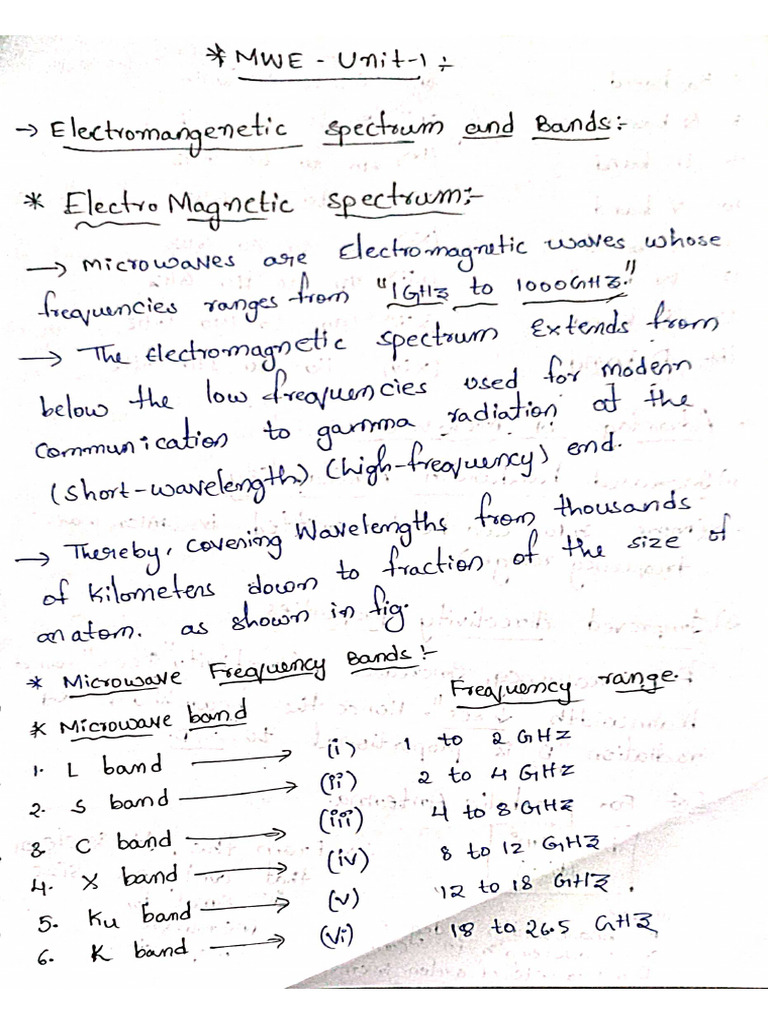 * MWE - Unit-1 :-
→ Electromangenetic spectrum and Bands:-
* Electro Magnetic spectrum:-
→ Microwaves are Electromagnetic waves whose
frequencies ranges from "1GHz to 1000GHz."
→ The Electromagnetic spectrum Extends from
below the low frequencies used for modern
communication to gamma radiation at the
(short-wavelength) (high-frequency) end.
→ Thereby, covering Wavelengths from thousands
of kilometers down to fraction of the size of
an atom. as shown in fig.
* Microwave Frequency Bands:-
* Microwave band Frequency range.
1. L band → (i) 1 to 2 GHz
2. S band → (ii) 2 to 4 GHz
3 C band → (iii) 4 to 8 GHz
4. X band → (iv) 8 to 12 GHz
5. Ku band → (v) 12 to 18 GHz.
6. K band → (vi) 18 to 26.5 GHz